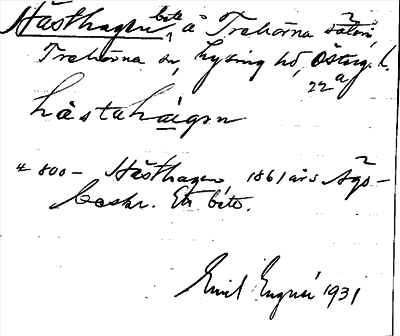 Hästhagen bete å Trehörna säteri,
Trehörna sn, Lysing hd, Österg. l.
22 a
håstahágen
4 800 - Hästhagen 1861 års Ägo-
beskr. Ett bete.
Emil 1931